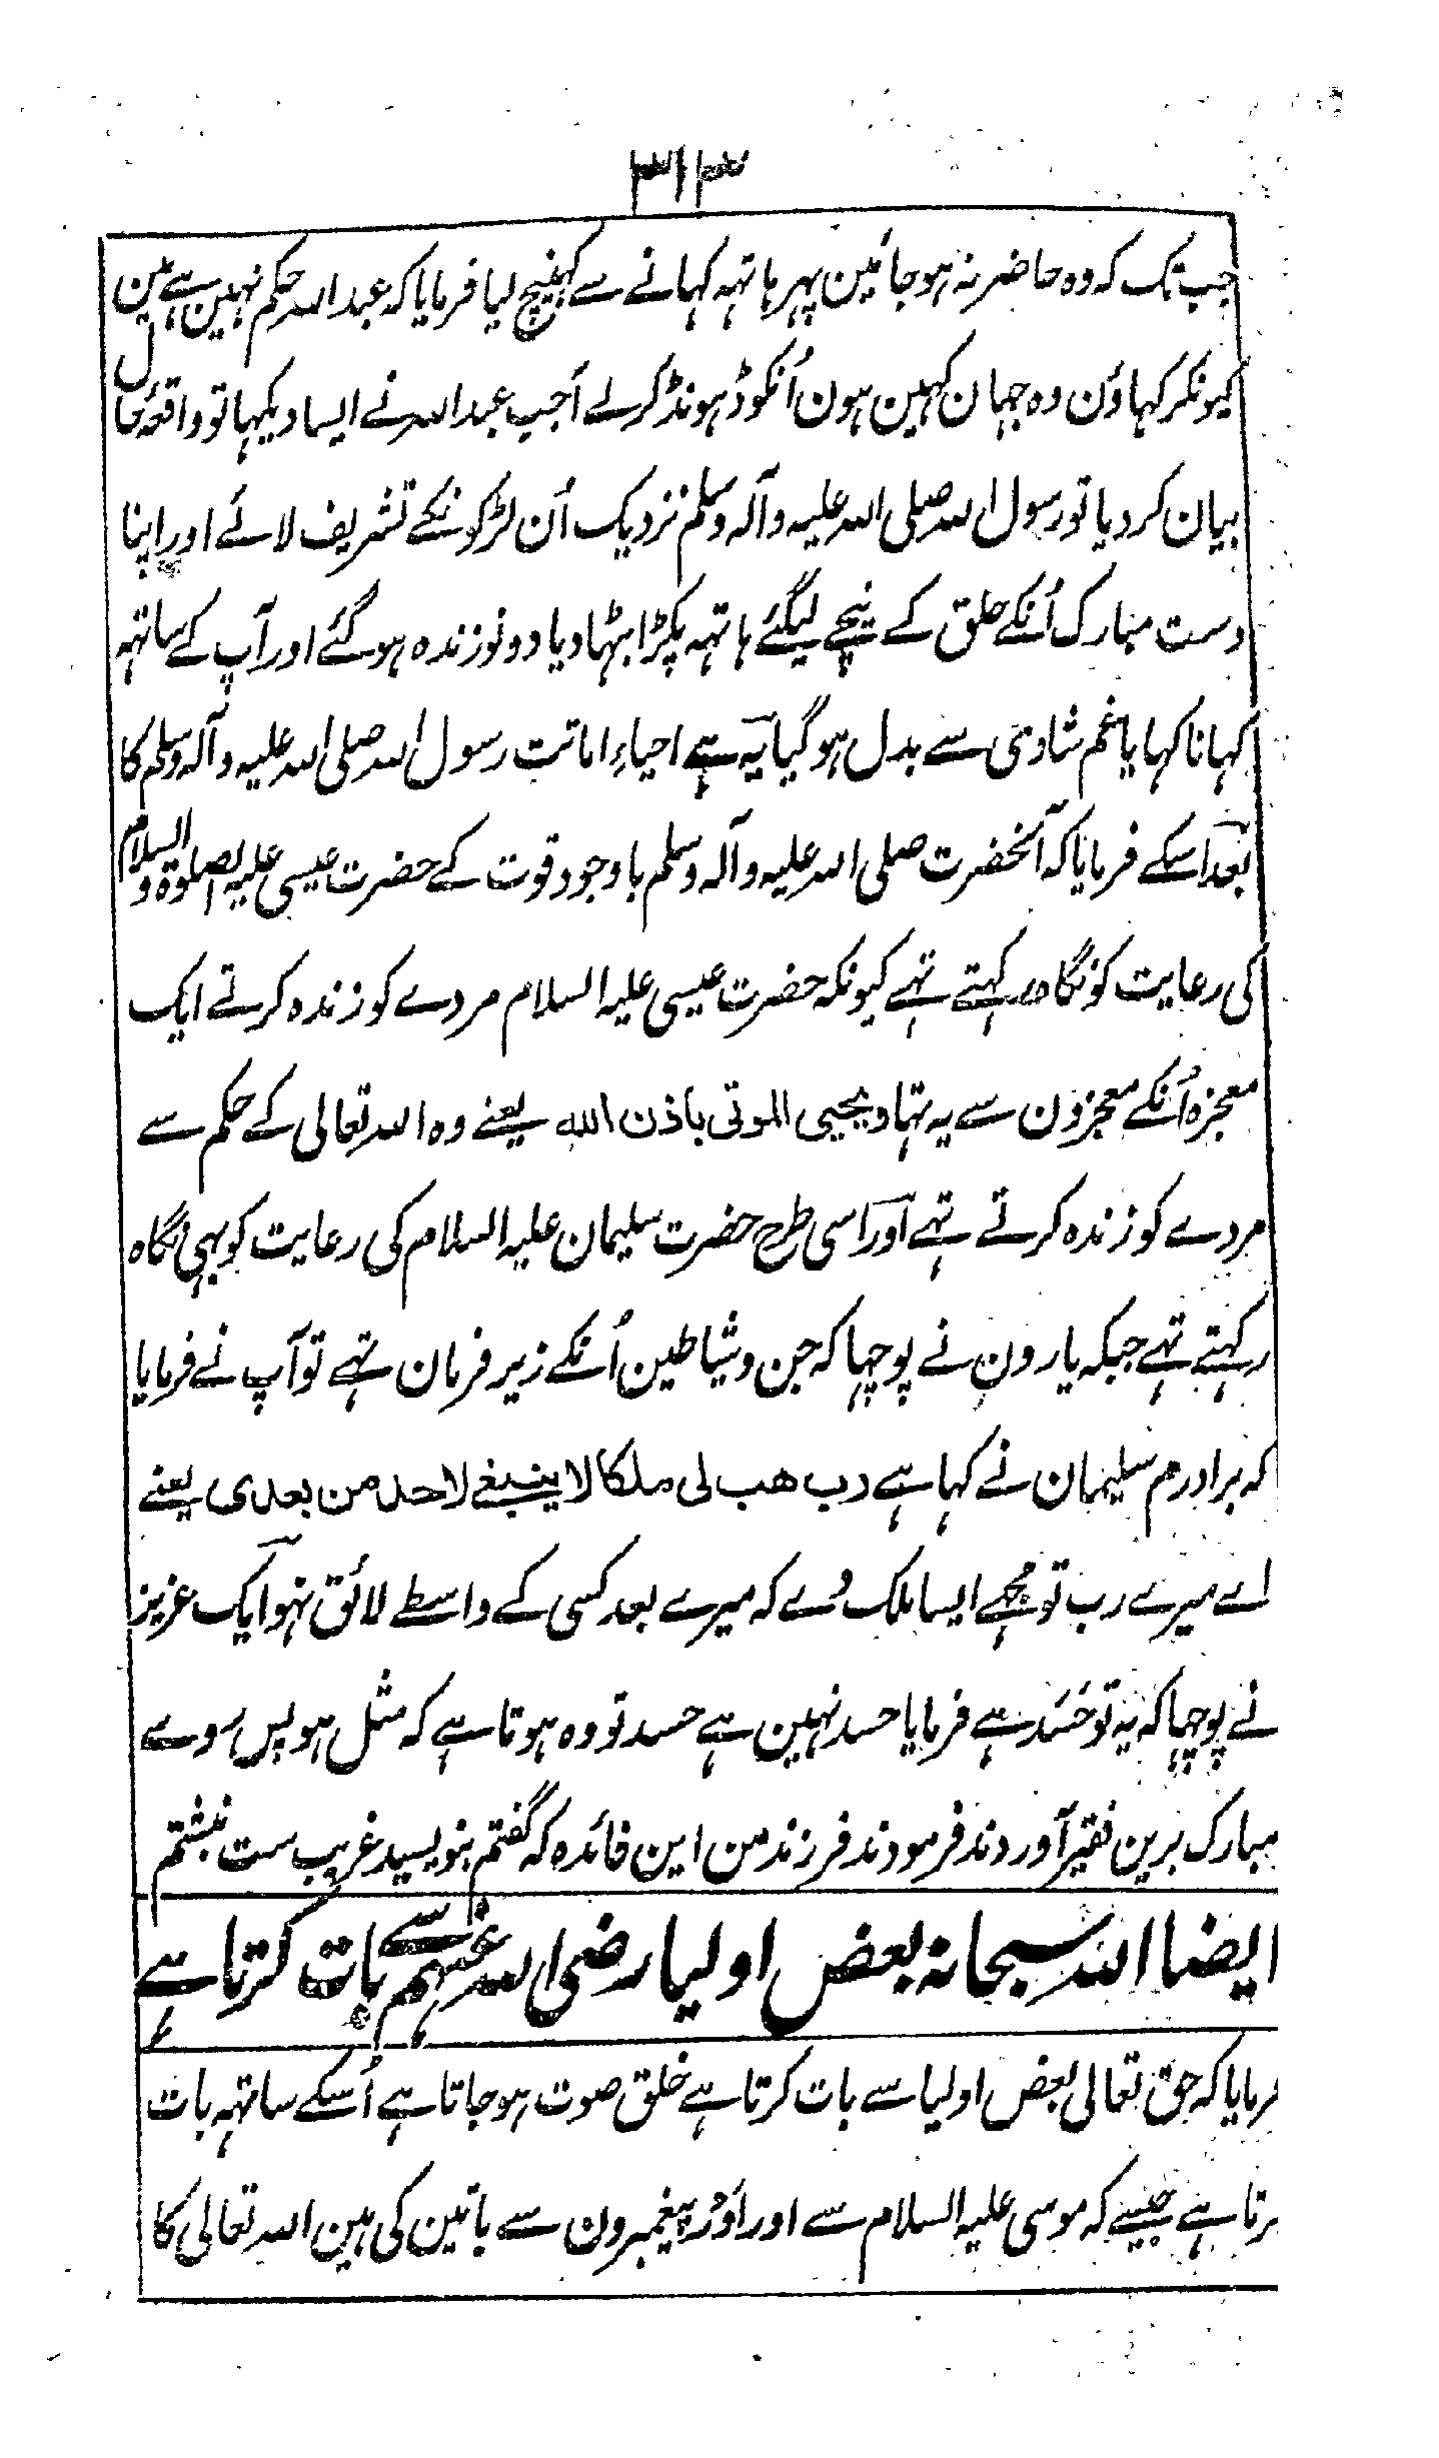 ۳۱۳
جب تک کہ وہ حاضر نہ ہو جائین پہر ہاتہہ کہانے سے کہینچ لیا فرمایا کہ عبد اللہ حکم نہین ہے مین
کیونکر کہاؤن وہ جہان کہین ہون اُنکو ڈہونڈ کر لے آ جب عبد اللہ نے ایسا دیکہا تو واقعۂ حال
بیان کر دیا تو رسول اللہ صلی اللہ علیہ وآلہ وسلم نزدیک اُن لڑکونکے تشریف لائے اور اپنا
دست مبارک اُنکے حلق کے نیچے لیگئے ہاتہہ پکڑا بٹہا دیا دونو زندہ ہو گئے اور آپ کے ساتہہ
کہانا کہایا غم شادی سے بدل ہو گیا یہ ہے احیاء اماتت رسول اللہ صلی اللہ علیہ وآلہ وسلم کا
بعد اسکے فرمایا کہ آنحضرت صلی اللہ علیہ وآلہ وسلم باوجود قوت کے حضرت عیسی علیہ الصلوۃ والسلام
کی رعایت کو نگاہ رکہتے تہے کیونکہ حضرت عیسی علیہ السلام مردے کو زندہ کرتے ایک
معجزہ اُنکے معجزون سے یہ تہا ویحیی الموتی باذن اللہ یعنے وہ اللہ تعالی کے حکم سے
مردے کو زندہ کرتے تہے اور اسی طرح حضرت سلیمان علیہ السلام کی رعایت کو بہی نگاہ
رکہتے تہے جبکہ یارون نے پوچہا کہ جن و شیاطین اُنکے زیر فرمان تہے تو آپ نے فرمایا
کہ برادرم سلیمان نے کہا ہے رب ھب لی ملکا لا ینبغے لاحد من بعدی یعنے
اے میرے رب تو مجہے ایسا ملک دے کہ میرے بعد کسی کے واسطے لائق نہو ایک عزیز
نے پوچہا کہ یہ تو حَسَد ہے فرمایا حسد نہین ہے حسد تو وہ ہوتا ہے کہ مثل ہو پس روے
مبارک برین فقیر آوردند فرمودند فرزند من این فائدہ کہ گفتم بنویسید غریب ست نبشتم
ایضا اللہ سبحانہ بعض اولیا رضی اللہ عنہم سے بات کرتا ہے
فرمایا کہ حق تعالی بعض اولیا سے بات کرتا ہے خلق صوت ہو جاتا ہے اُسکے ساتہہ بات
کرتا ہے جیسے کہ موسی علیہ السلام سے اور اَوْر پیغمبرون سے باتین کی ہین اللہ تعالی کا